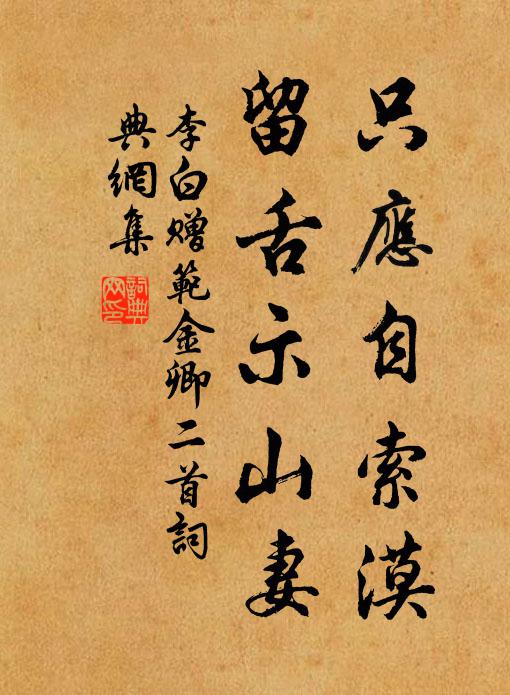 只應自索漠
留舌示山妻
李白贈範金卿二首詞
典網集
詞典網印